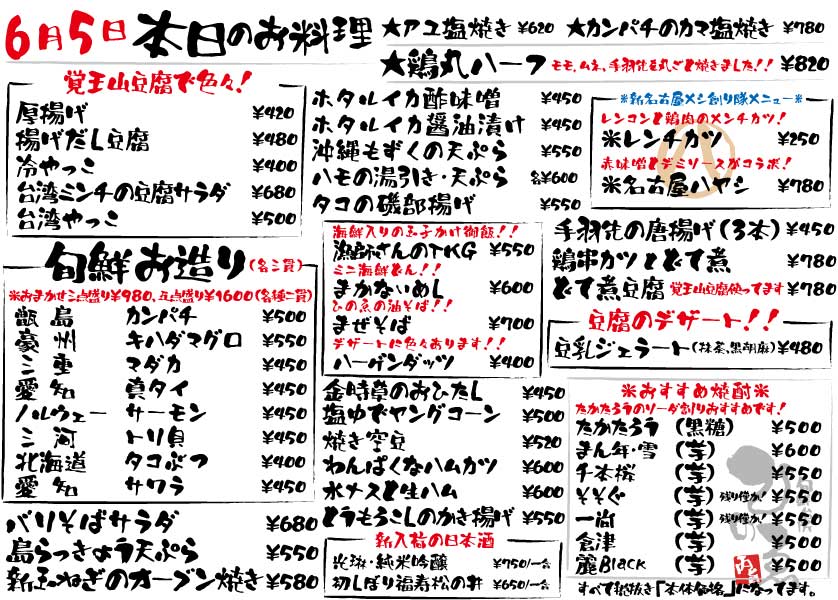 6月5日 本日のお料理
★アユ塩焼き ¥620 ★カンパチのカマ塩焼き ¥780
★鶏丸ハーフ モモ、ムネ、手羽先を丸ごと焼きました!! ¥820
覚王山豆腐で色々!
厚揚げ ¥420
揚げだし豆腐 ¥480
冷やっこ ¥400
台湾ミンチの豆腐サラダ ¥680
台湾やっこ ¥500
旬鮮お造り(各二貫)
※おまかせ三点盛り¥980、五点盛り¥1600(各種二貫)
甑島 カンパチ ¥500
豪州 キハダマグロ ¥550
三重 マダカ ¥450
愛知 真タイ ¥450
ノルウェー サーモン ¥450
三河 トリ貝 ¥450
北海道 タコぶつ ¥400
愛知 サワラ ¥450
パリそばサラダ ¥680
島らっきょう天ぷら ¥550
新玉ねぎのオーブン焼き ¥580
ホタルイカ酢味噌 ¥450
ホタルイカ醤油漬け ¥450
沖縄もずくの天ぷら ¥550
ハモの湯引き・天ぷら 各¥600
タコの磯部揚げ ¥550
海鮮入りの玉子かけ御飯!!
漁師さんのTKG ¥550
ミニ海鮮どん!!
まかないめし ¥600
ひの魚の油そば!!
まぜそば ¥700
デザートに色々あります!!
ハーゲンダッツ ¥400
金時草のおひたし ¥450
塩ゆでヤングコーン ¥500
焼き空豆 ¥520
わんぱくなハムカツ ¥600
水ナスと生ハム ¥600
とうもろこしのかき揚げ ¥550
新入荷の日本酒
光琳・純米吟醸 ¥750/一合
初しぼり福寿松の井 ¥650/一合
※新名古屋メシ創り隊メニュー※
レンコンと鶏肉のメンチカツ!
※レンチカツ ¥250
赤味噌とデミソースがコラボ!
※名古屋ハヤシ ¥780
手羽先の唐揚げ(3本) ¥450
鶏串カツとどて煮 ¥780
どて煮豆腐 覚王山豆腐使ってます ¥780
豆腐のデザート!!
豆乳ジェラート(抹茶、黒胡麻) ¥480
※おすすめ焼酎※
たかたろうのソーダ割りおすすめです!
たかたろう (黒糖) ¥500
まん年・雪 (芋) ¥600
千本桜 (芋) ¥550
そそぐ (芋) 残り僅か! ¥550
一尚 (芋) 残り僅か! ¥550
倉津 (芋) ¥500
麗Black (芋) ¥500
すべて税抜き「本体価格」になってます。